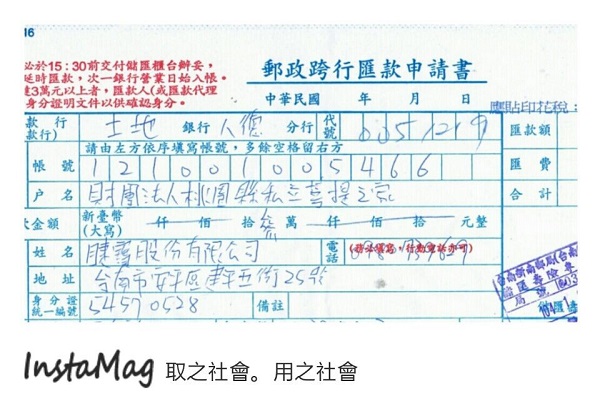 16
必於15:30前交付儲匯櫃台辦妥，
延時匯款，次一銀行營業日始入帳。
達3萬元以上者，匯款人(或匯款代理
身分證明文件以供確認身分。
郵政跨行匯款申請書
中華民國 年 月 日
應貼印花稅：
款 行 土地 銀行 人德 分行 代號 0051219 匯款額
款行) 請由左方依序填寫帳號，多餘空格留右方
帳號 121001005466 匯費
戶名 財團法人桃園縣私立菩提之家 合計
大金額 新臺幣(大寫) 仟 佰 拾 參 萬 仟 佰 拾 元整
姓名 股份有限公司 電話 (務必填寫，行動電話亦可)
地址 台南市安平區建平五街25號
身分證統一編號 54570528 備註
InstaMag 取之社會。用之社會